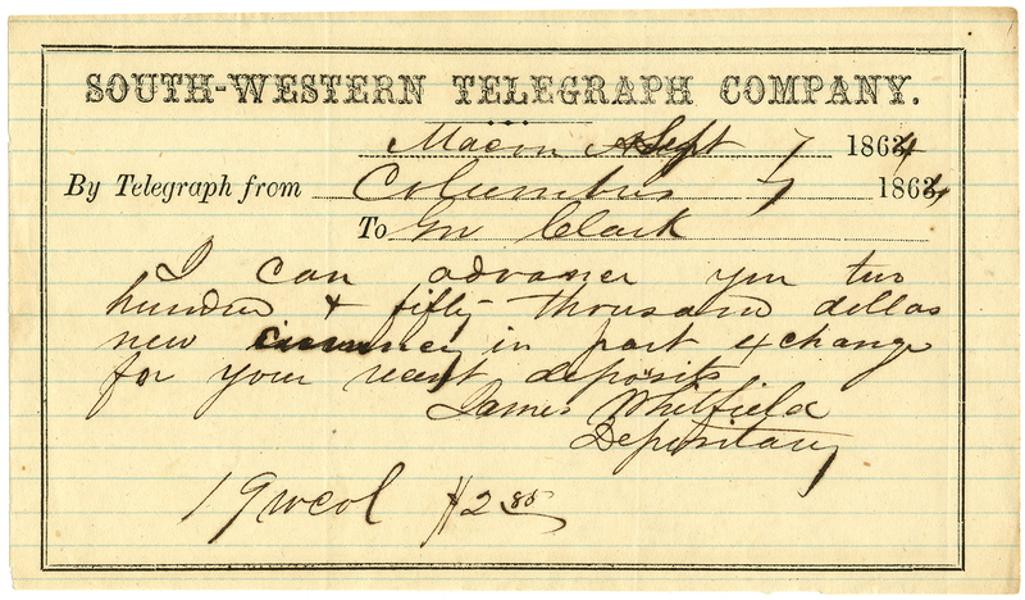 SOUTH-WESTERN TELEGRAPH COMPANY.
Macon Sept 7 1864
By Telegraph from Columbus 7 1864
To Gov Clark
I can advance you two
hundred & fifty thousand dollars
new currency in part exchange
for your recent deposits
James Whitfield
Depositary
19 w col $2.85